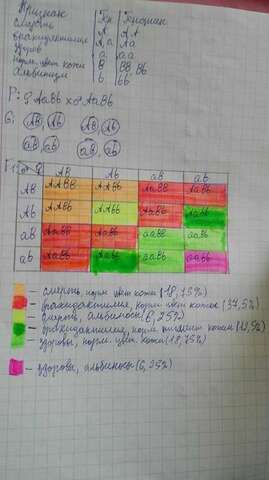 Признак | Ген | Генотип
смерть | A | AA
брахидактилия | A, a | Aa
здоров | a | aa
норм. цвет кожи | B | BB, Bb
альбинизм | b | bb
P: ♀ AaBb x ♂ AaBb
G: AB Ab AB, Ab
aB ab aB, ab
F1 ♂ ♀ AB Ab aB ab
AB AABB AABb AaBB AaBb
Ab AABb AAbb AaBb Aabb
aB AaBB AaBb aaBB aaBb
ab AaBb Aabb aaBb aabb
- смерть, норм. цвет кожи (18,75%)
- брахидактилия, норм. цвет кожи (37,5%)
- смерть, альбинос (6,25%)
- брахидактилия, норм. пигмент кожи (12,5%)
- здоровы, норм. цвет. кожа (18,75%)
- здоровы, альбиносы (6,25%)